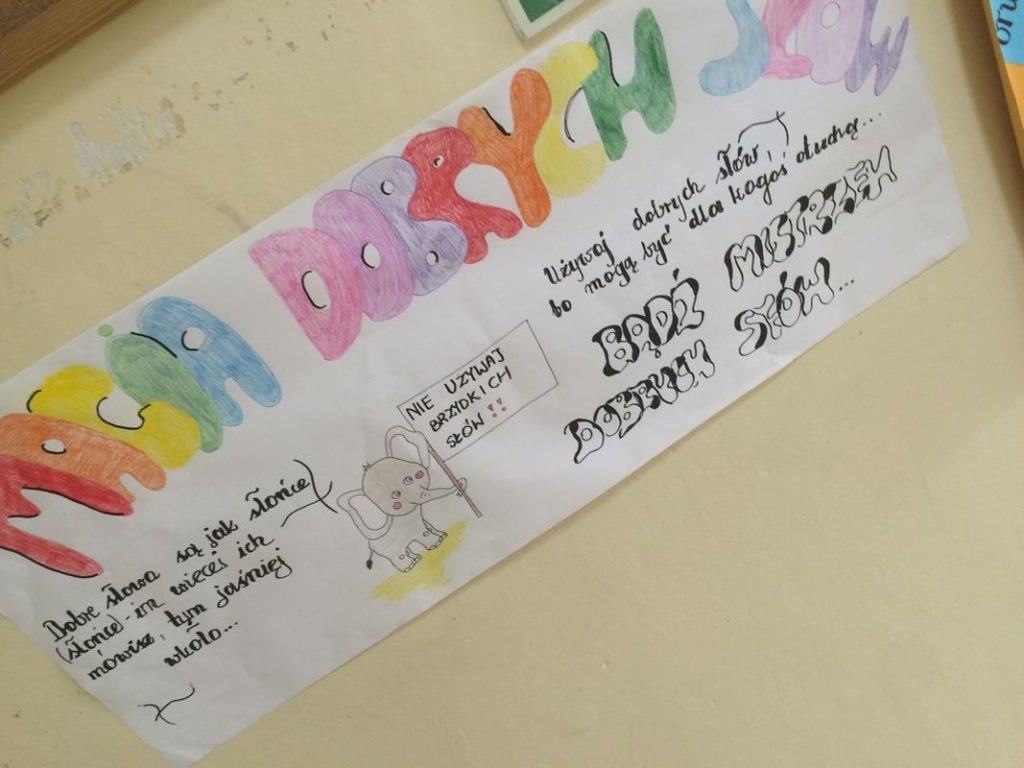 MAGIA DOBRYCH SŁÓW
Dobre słowa są jak słońce
(słońce) - im więcej ich
mówisz, tym jaśniej
wkoło...
NIE UŻYWAJ
BRZYDKICH
SŁÓW !!
Używaj dobrych słów,
bo mogą być dla kogoś otuchą...
BĄDŹ MISTRZEM
DOBRYCH SŁÓW...